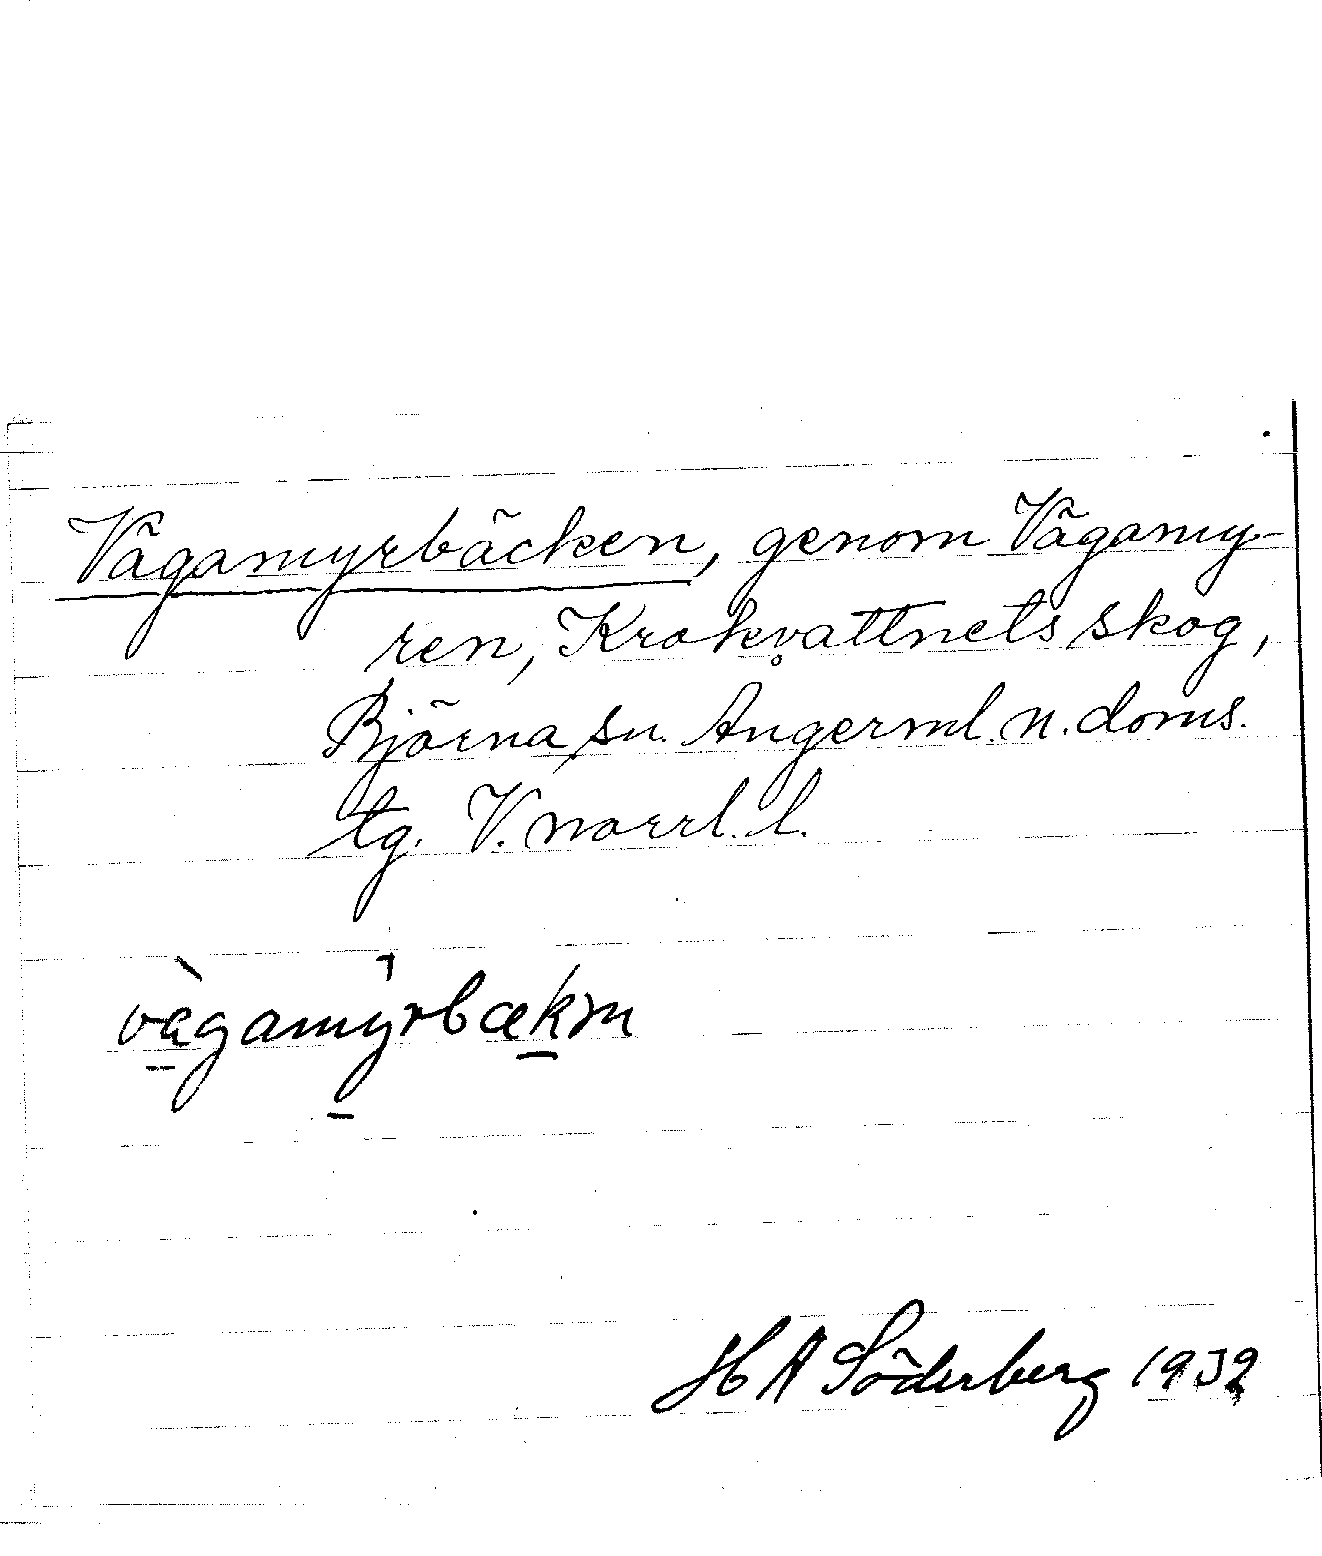 Vägamyrbäcken, genom Vägamy-
ren, Krokvattnets skog,
Björna sn. Ångerml. n. doms.
tg. V. norrl. l.
vàgamyrbækm
H A Söderberg 1932